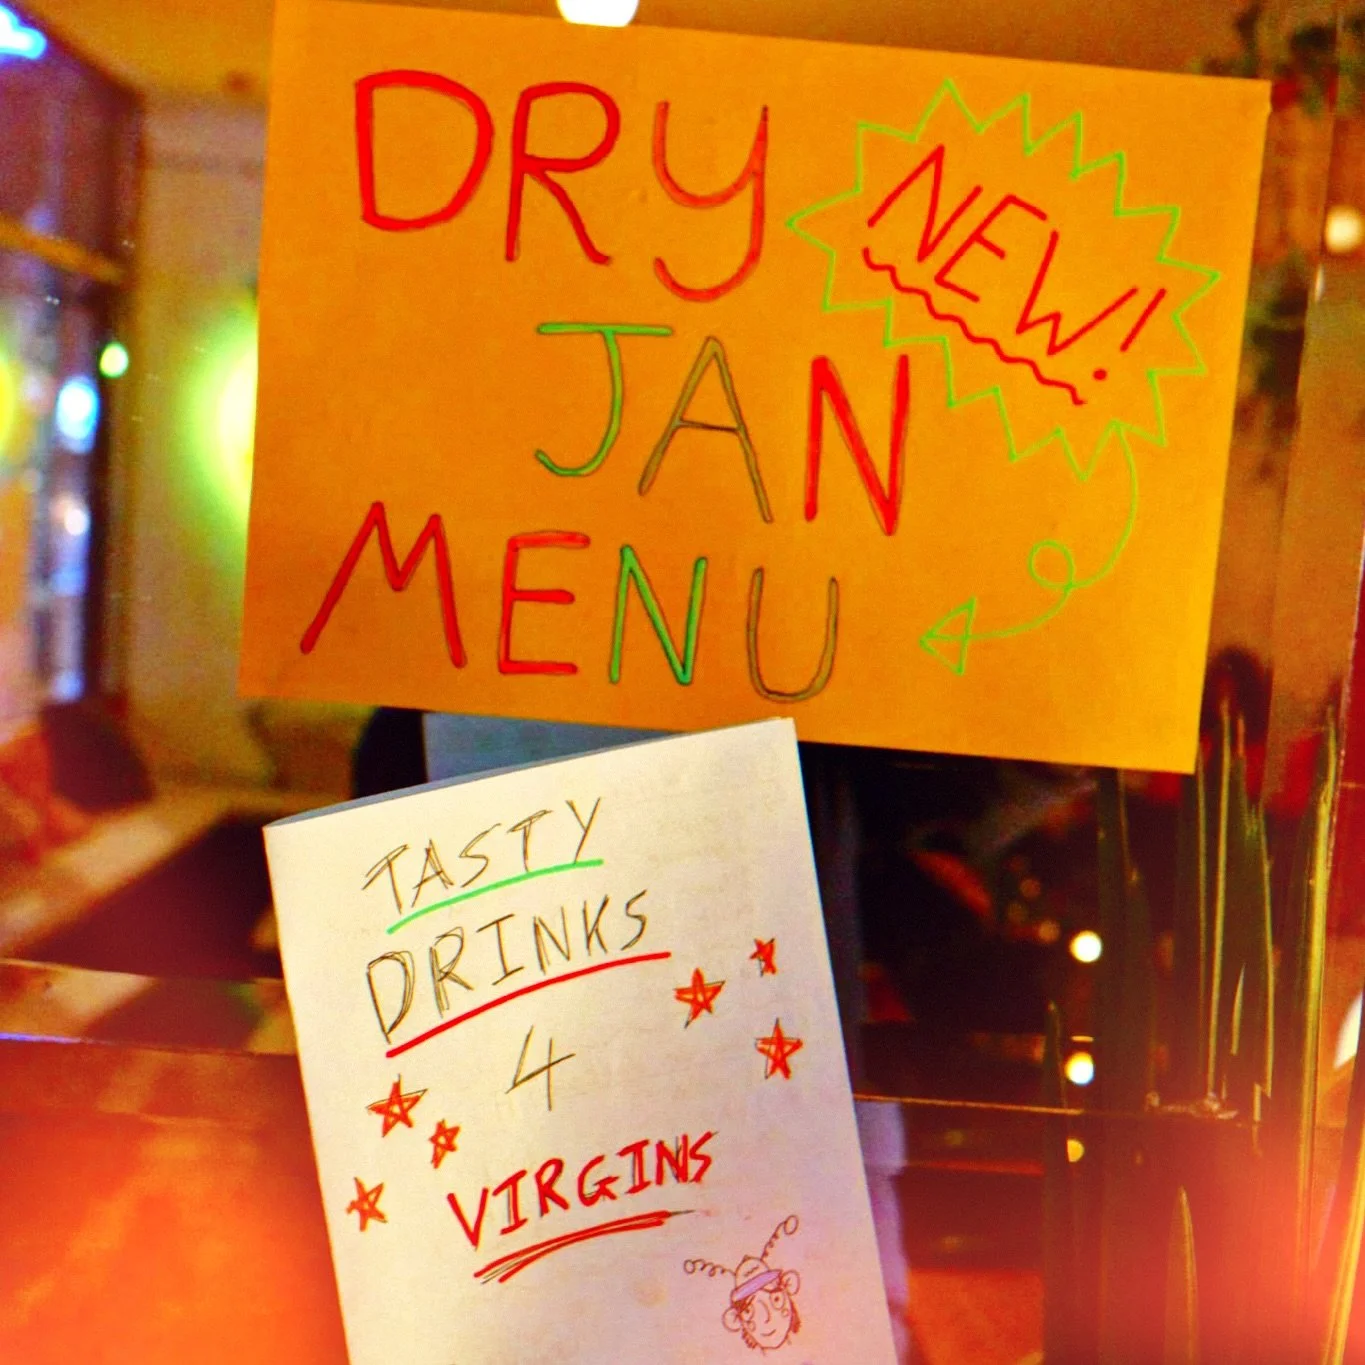 DRY
NEW!
JAN
MENU
TASTY
DRINKS
4
VIRGINS